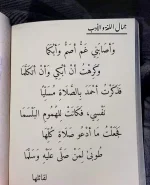 جمال اللغة والأدب
وأصابني غم أصم وأبكما
وكرهت أن أبكي وأن أتكلما
فذكرت أحمد بالصلاة مسلما
نفسي، فكانت للهموم البلسما
فجعلت ما أدعو صلاة كلها
طوبى لمن صلى عليه وسلما
لقائلها